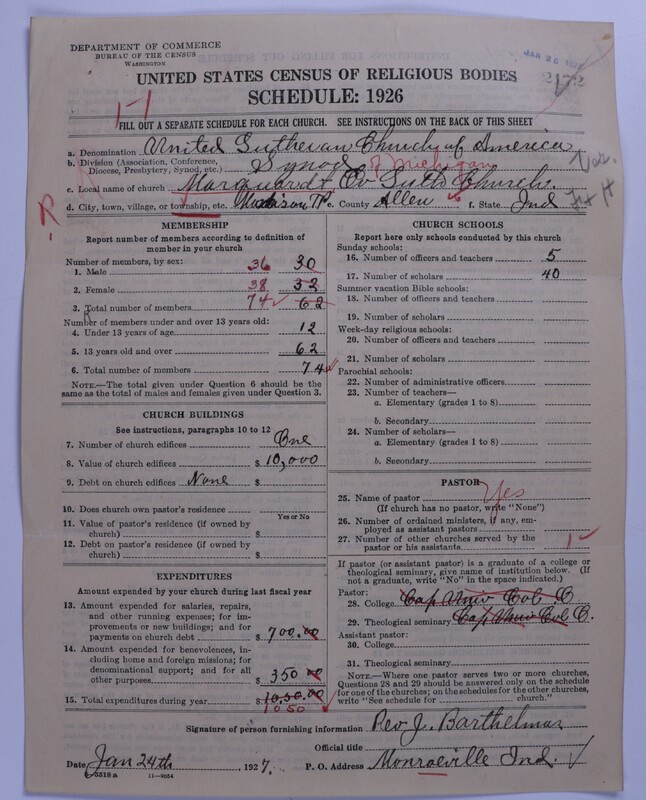 DEPARTMENT OF COMMERCE
BUREAU OF THE CENSUS
WASHINGTON
2172
UNITED STATES CENSUS OF RELIGIOUS BODIES
SCHEDULE: 1926
1-1
FILL OUT A SEPARATE SCHEDULE FOR EACH CHURCH. SEE INSTRUCTIONS ON THE BACK OF THIS SHEET
a. Denomination United Lutheran Church of America
b. Division (Association, Conference,
Diocese, Presbytery, Synod, etc.) Synod of Michigan
c. Local name of church Marquardt Ev Luth Church.
R d. City, town, village, or township, etc. Madison TP e. County Allen f. State Ind
MEMBERSHIP
Report number of members according to definition of
member in your church
Number of members, by sex:
1. Male 36 30
2. Female 38 32
3. Total number of members 74 62
Number of members under and over 13 years old:
4. Under 13 years of age 12
5. 13 years old and over 62
6. Total number of members 74
NOTE.—The total given under Question 6 should be the
same as the total of males and females given under Question 3.
CHURCH BUILDINGS
See instructions, paragraphs 10 to 12
7. Number of church edifices One
8. Value of church edifices $ 10,000
9. Debt on church edifices None $
10. Does church own pastor's residence?
Yes or No
11. Value of pastor's residence (if owned by
church) $
12. Debt on pastor's residence (if owned by
church) $
EXPENDITURES
Amount expended by your church during last fiscal year
13. Amount expended for salaries, repairs,
and other running expenses; for im-
provements or new buildings; and for
payments on church debt $ 700.00
14. Amount expended for benevolences,
including home and foreign missions; for
denominational support; and for all
other purposes $ 350 00
15. Total expenditures during year $ 1050.00
1050
CHURCH SCHOOLS
Report here only schools conducted by this church
Sunday schools:
16. Number of officers and teachers 5
17. Number of scholars 40
Summer vacation Bible schools:
18. Number of officers and teachers
19. Number of scholars
Week-day religious schools:
20. Number of officers and teachers
21. Number of scholars
Parochial schools:
22. Number of administrative officers
23. Number of teachers—
a. Elementary (grades 1 to 8)
b. Secondary
24. Number of scholars—
a. Elementary (grades 1 to 8)
b. Secondary
PASTOR
25. Name of pastor Yes
(If church has no pastor, write "None")
26. Number of ordained ministers, if any, em-
ployed as assistant pastors
27. Number of other churches served by the
pastor or his assistants 1
If pastor (or assistant pastor) is a graduate of a college or
theological seminary, give name of institution below. (If
not a graduate, write "No" in the space indicated.)
Pastor:
28. College Cap Univ Col O
29. Theological seminary Cap Univ Col O.
Assistant pastor:
30. College
31. Theological seminary
NOTE.—Where one pastor serves two or more churches,
Questions 28 and 29 should be answered only on the schedule
for one of the churches; on the schedules for the other churches,
write "See schedule for church."
Signature of person furnishing information Rev J. Barthelmas
Official title
Date Jan 24th, 1927. P. O. Address Monroeville Ind.
8-5318 a 11-9054